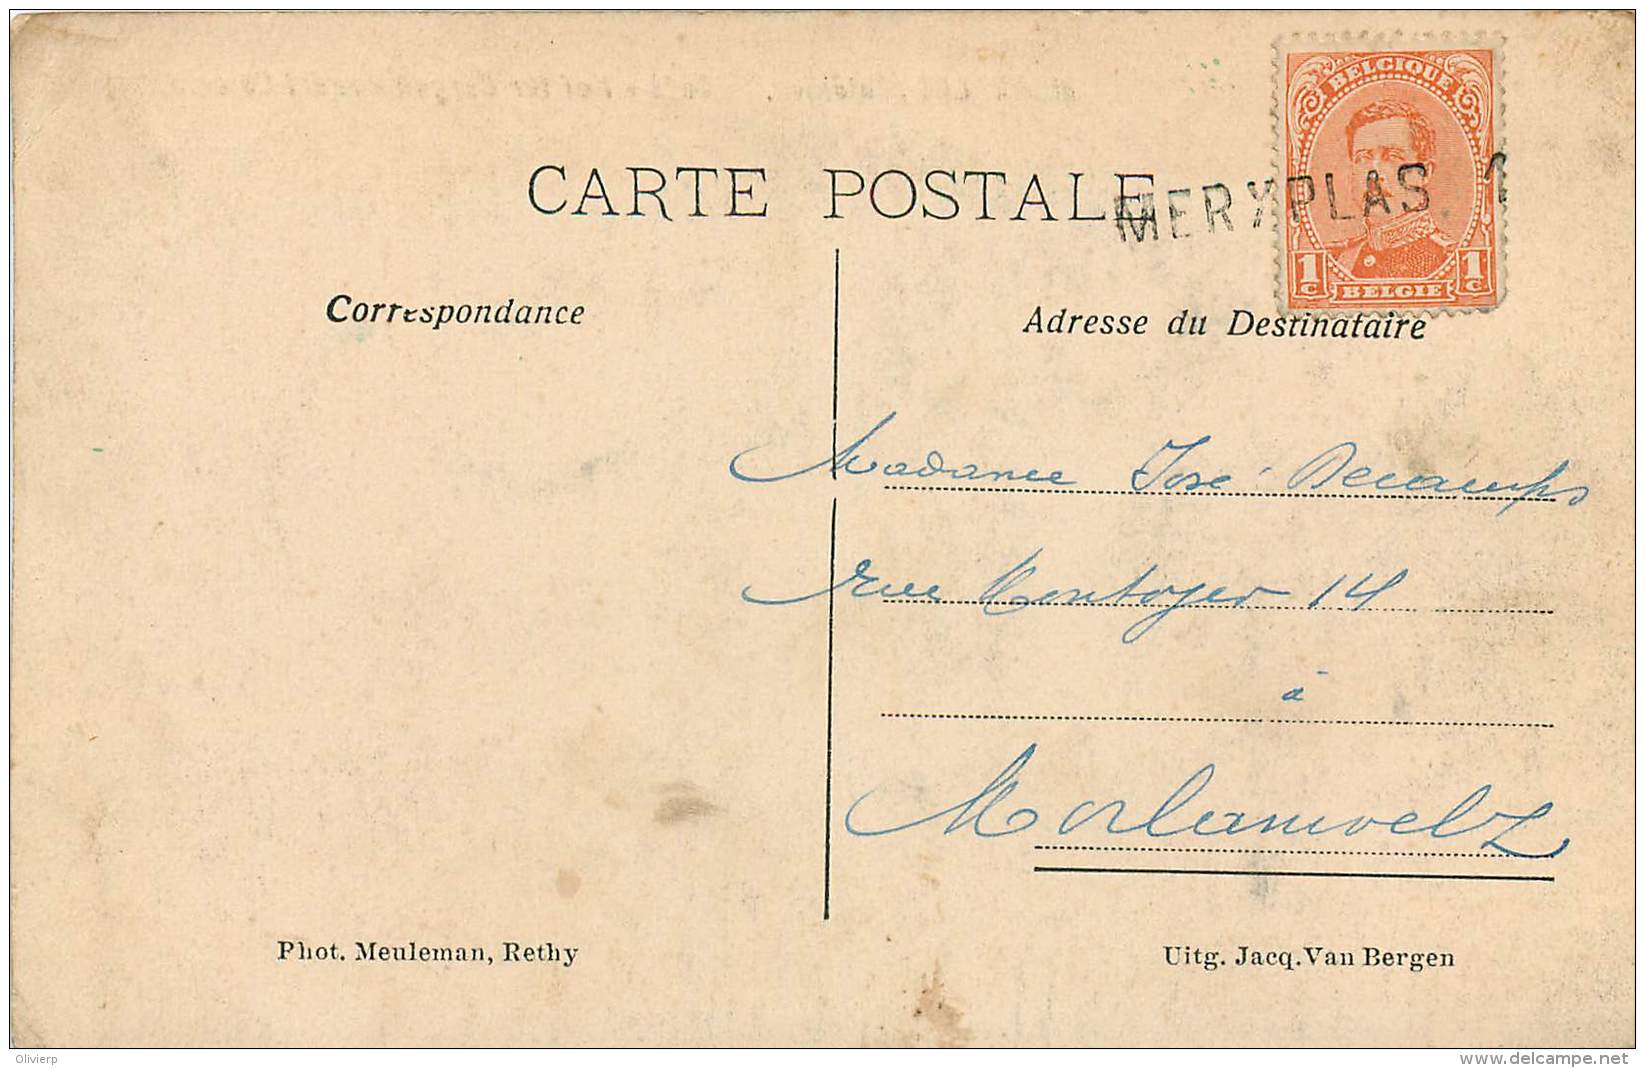 BELGIQUE
CARTE POSTALE
MERXPLAS 1
1c BELGIË 1c
Correspondance
Adresse du Destinataire
Madame José Decamps
rue Montoyer 14
à
Morlanwelz
Phot. Meuleman, Rethy
Uitg. Jacq. Van Bergen
Olivierp
www.delcampe.net